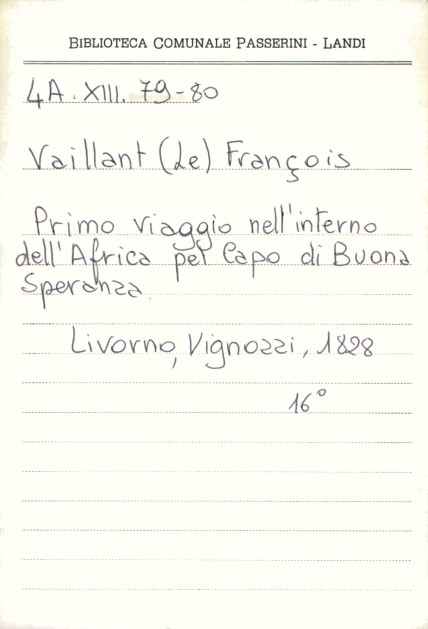 BIBLIOTECA COMUNALE PASSERINI - LANDI
4A. XIII. 79-80
Vaillant (Le) François
Primo viaggio nell'interno
dell'Africa pel Capo di Buona
Speranza
Livorno, Vignozzi, 1828
16°